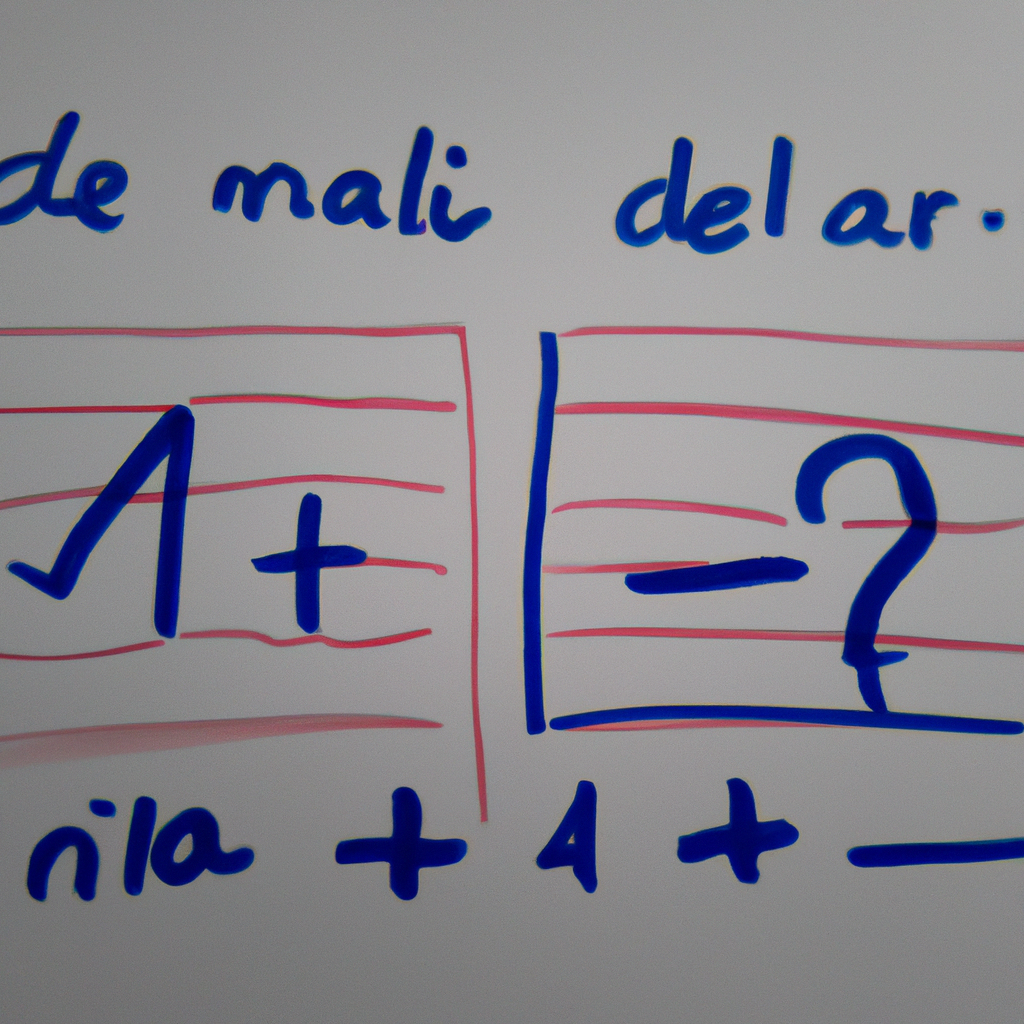 de mali delar.
1+ -?
nila + 4 + —